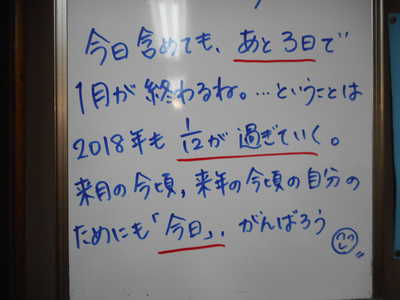 今日含めても、あと3日で
1月が終わるね。…ということは
2018年も1/12が過ぎていく。
来月の今頃，来年の今頃の自分の
ためにも「今日」，がんばろう